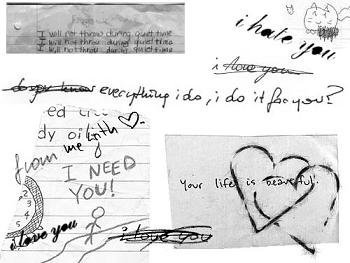 I will not throw during quiet time
I will not throw during quiet time
I will not throw during quiet time
i hate you
i love you
do you know everything i do, i do it for you?
ed
dy oi with
from me
I NEED
YOU!
Your life is beautiful.
2
3
4
5
i love you
i love you